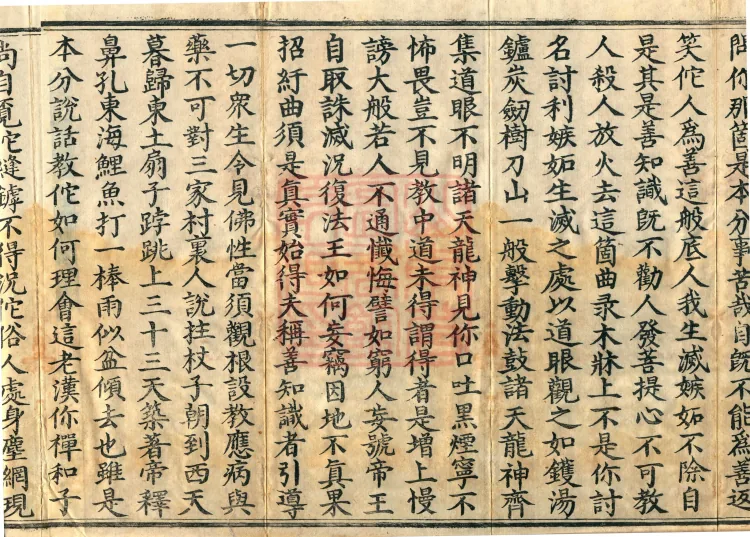 問你那箇是本分事苦哉自旣不能爲善返
笑佗人爲善這般底人我生滅嫉妬不除自
是其是善知識旣不勸人發菩提心不可教
人殺人放火去這箇曲彔木牀上不是你討
名討利嫉妬生滅之處以道眼觀之如鑊湯
鑪炭劒樹刀山一般擊動法鼓諸天龍神齊
集道眼不明諸天龍神見你口吐黑煙寧不
怖畏豈不見教中道未得謂得者是增上慢
謗大般若人不通懺悔譬如窮人妄號帝王
自取誅滅況復法王如何妄竊因地不真果
招紆曲須是真實始得夫稱善知識者引導
一切衆生令見佛性當須觀根設教應病與
藥不可對三家村裏人說拄杖子朝到西天
暮歸東土扇子𨁝跳上三十三天築著帝釋
鼻孔東海鯉魚打一棒雨似盆傾去也雖是
本分說話教佗如何理會這老漢你禪和子
尚自覓佗縫罅不得況佗俗人處身塵網現